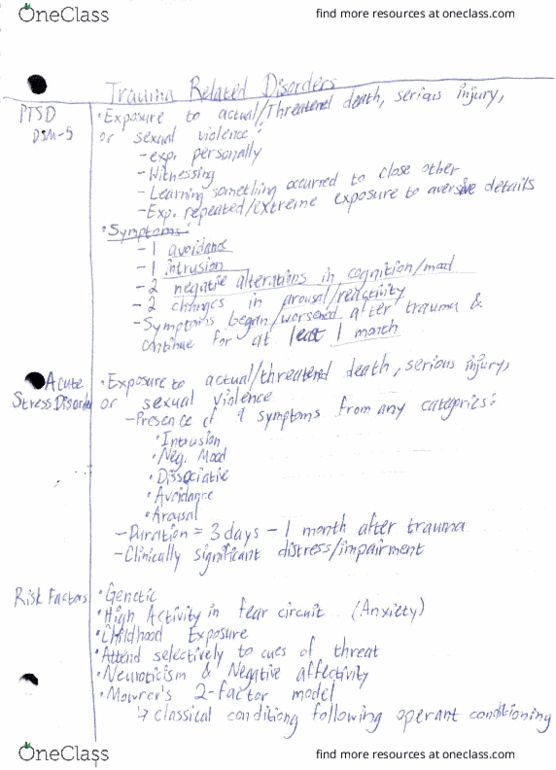 OneClass
find more resources at oneclass.com
Trauma Related Disorders
PTSD
DSM-5
• Exposure to actual/Threatened death, serious injury,
or sexual violence:
- exp. personally
- Witnessing
- Learning something occurred to close other
- Exp. repeated/extreme exposure to aversive details
• Symptoms:
- 1 avoidance
- 1 intrusion
- 2 negative alterations in cognition/mood
- 2 changes in arousal/reactivity
- Symptoms began/worsened after trauma &
continue for at least 1 month
Acute
Stress Disorder
• Exposure to actual/threatened death, serious injury,
or sexual violence
- Presence of 9 symptoms from any categories:
• Intrusion
• Neg. Mood
• Dissociative
• Avoidance
• Arousal
- Duration = 3 days - 1 month after trauma
- Clinically significant distress/impairment
Risk Factors
• Genetic
• High Activity in fear circuit (Anxiety)
• Childhood Exposure
• Attend selectively to cues of threat
• Neuroticism & Negative affectivity
• Mowrer's 2-factor model
↳ classical conditiong following operant conditioning
OneClass
find more resources at oneclass.com